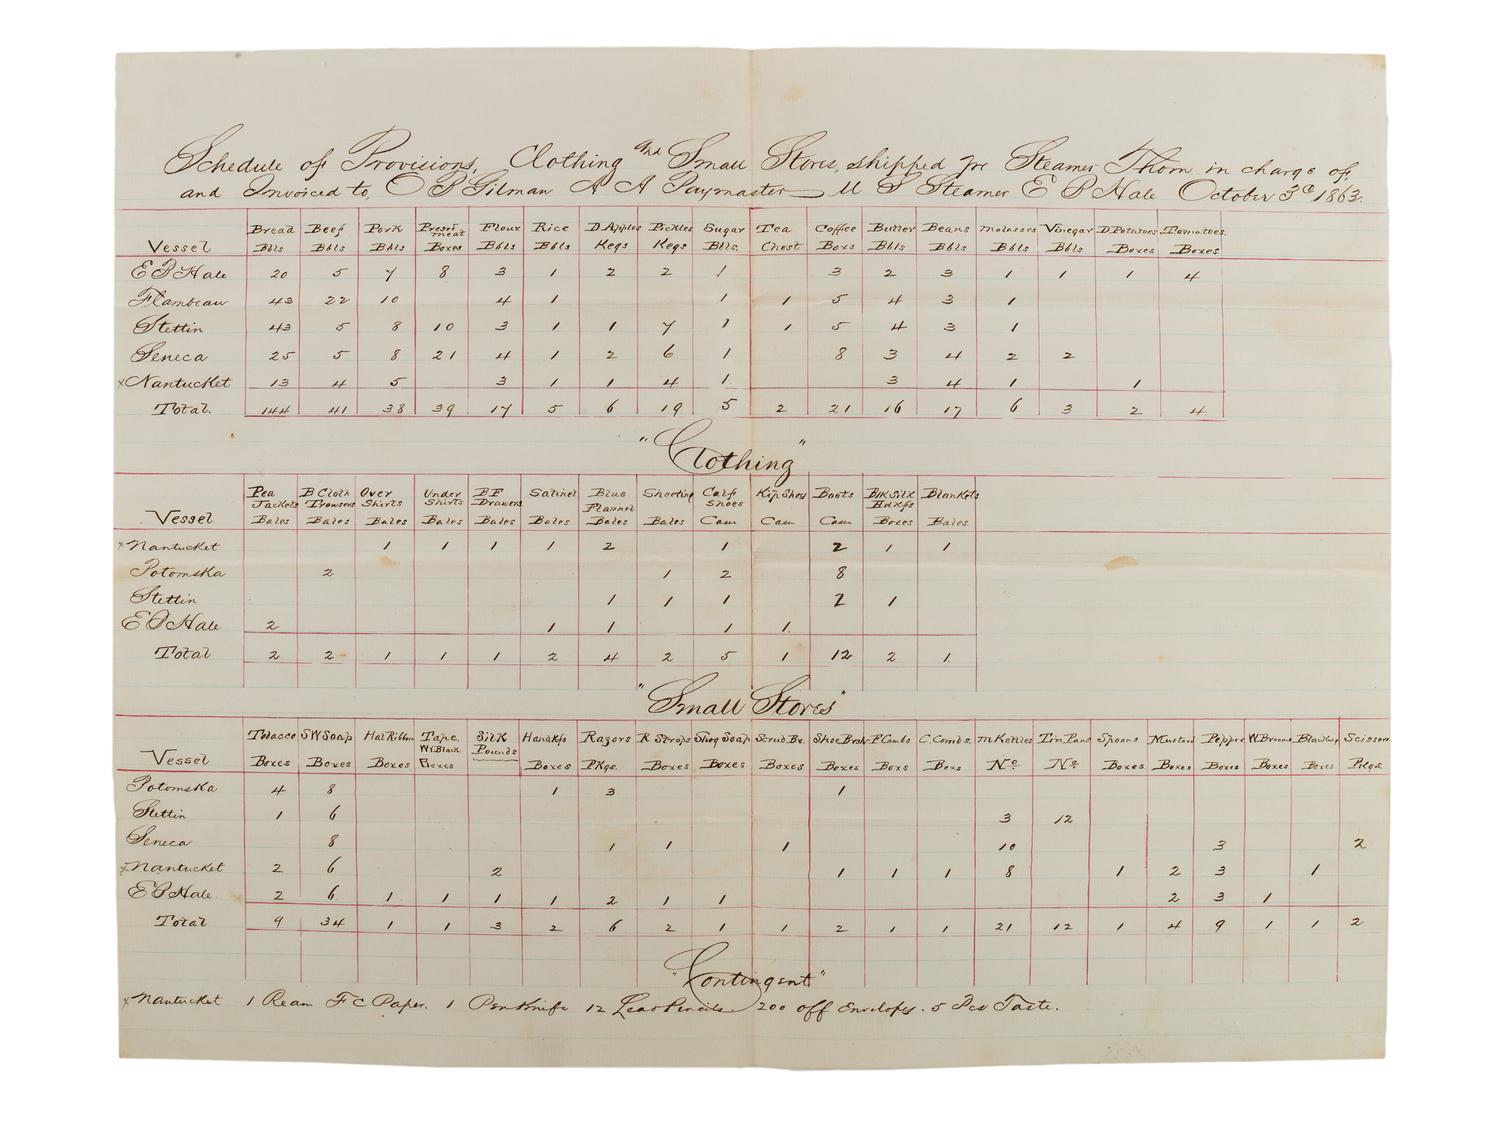 Schedule of Provisions, Clothing and Small Stores, shipped pr Steamer Thorn in charge of,
and Invoiced to, O B Gilman A A Paymaster U S Steamer E B Hale October 3d 1863.
Vessel Bread Bbls Beef Bbls Pork Bbls Preser meat Boxes Flour Bbls Rice Bbls D. Apples Kegs Pickles Kegs Sugar Bbls. Tea Chest Coffee Boxs Butter Bbls Beans Bbls Molasses Bbls Vinegar Bbls D. Potatoes Boxes Tomatoes. Boxes
E B Hale 20 5 7 8 3 1 2 2 1 3 2 3 1 1 1 4
Flambeau 43 22 10 4 1 1 1 5 4 3 1
Stettin 43 5 8 10 3 1 1 7 1 1 5 4 3 1
Seneca 25 5 8 21 4 1 2 6 1 8 3 4 2 2
x Nantucket 13 4 5 3 1 1 4 1 3 4 1 1
Total. 144 41 38 39 17 5 6 19 5 2 21 16 17 6 3 2 4
"Clothing"
Vessel Pea Jackets Bales B Cloth Trowsers Bales Over Shirts Bales Under Shirts Bales B F Drawers Bales Satinet Bales Blue Flannel Bales Sheeting Bales Calf Shoes Case Kip Shoes Case Boots Case Blk Silk Hdkfs Boxes Blankets Bales
x Nantucket 1 1 1 1 2 1 2 1 1
Potomska 2 1 2 8
Stettin 1 1 1 2 1
E B Hale 2 1 1 1 1
Total 2 2 1 1 1 2 4 2 5 1 12 2 1
"Small Stores"
Vessel Tobacco Boxes S W Soap Boxes Hat Ribbon Boxes Tape Wt. Black. Boxes Silk Pounds Handkfs Boxes Razors Pkgs. R Strops Boxes Shvg Soap Boxes Scrub Br. Boxes Shoe Brsh Boxes F Combs Boxs C. Combs. Boxs M Kettles No. Tin Pans No. Spoons Boxes Mustard Boxes Pepper Boxes W. Brooms Boxes Blacking Boxes Scissors Pkgs.
Potomska 4 8 1 3 1
Stettin 1 6 3 12
Seneca 8 1 1 1 10 3 2
x Nantucket 2 6 2 1 1 1 8 1 2 3 1
E B Hale 2 6 1 1 1 1 2 1 1 2 3 1
Total 9 34 1 1 3 2 6 2 1 1 2 1 1 21 12 1 4 9 1 1 2
"Contingent"
x Nantucket 1 Ream F C Paper. 1 Pen Knife 12 Lead Pencils 200 off Envelopes. 5 Pcs Taste.